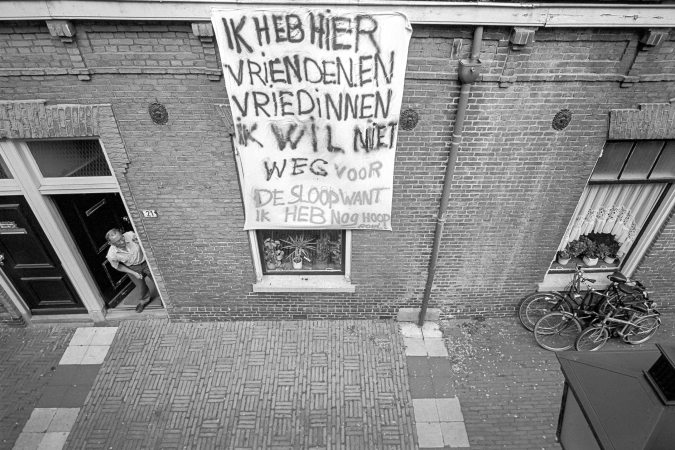 IK HEB HIER
VRIENDEN.EN
VRIEDINNEN
IK WIL NIET
WEG VOOR
DE SLOOP WANT
IK HEB NOG HOOP
21